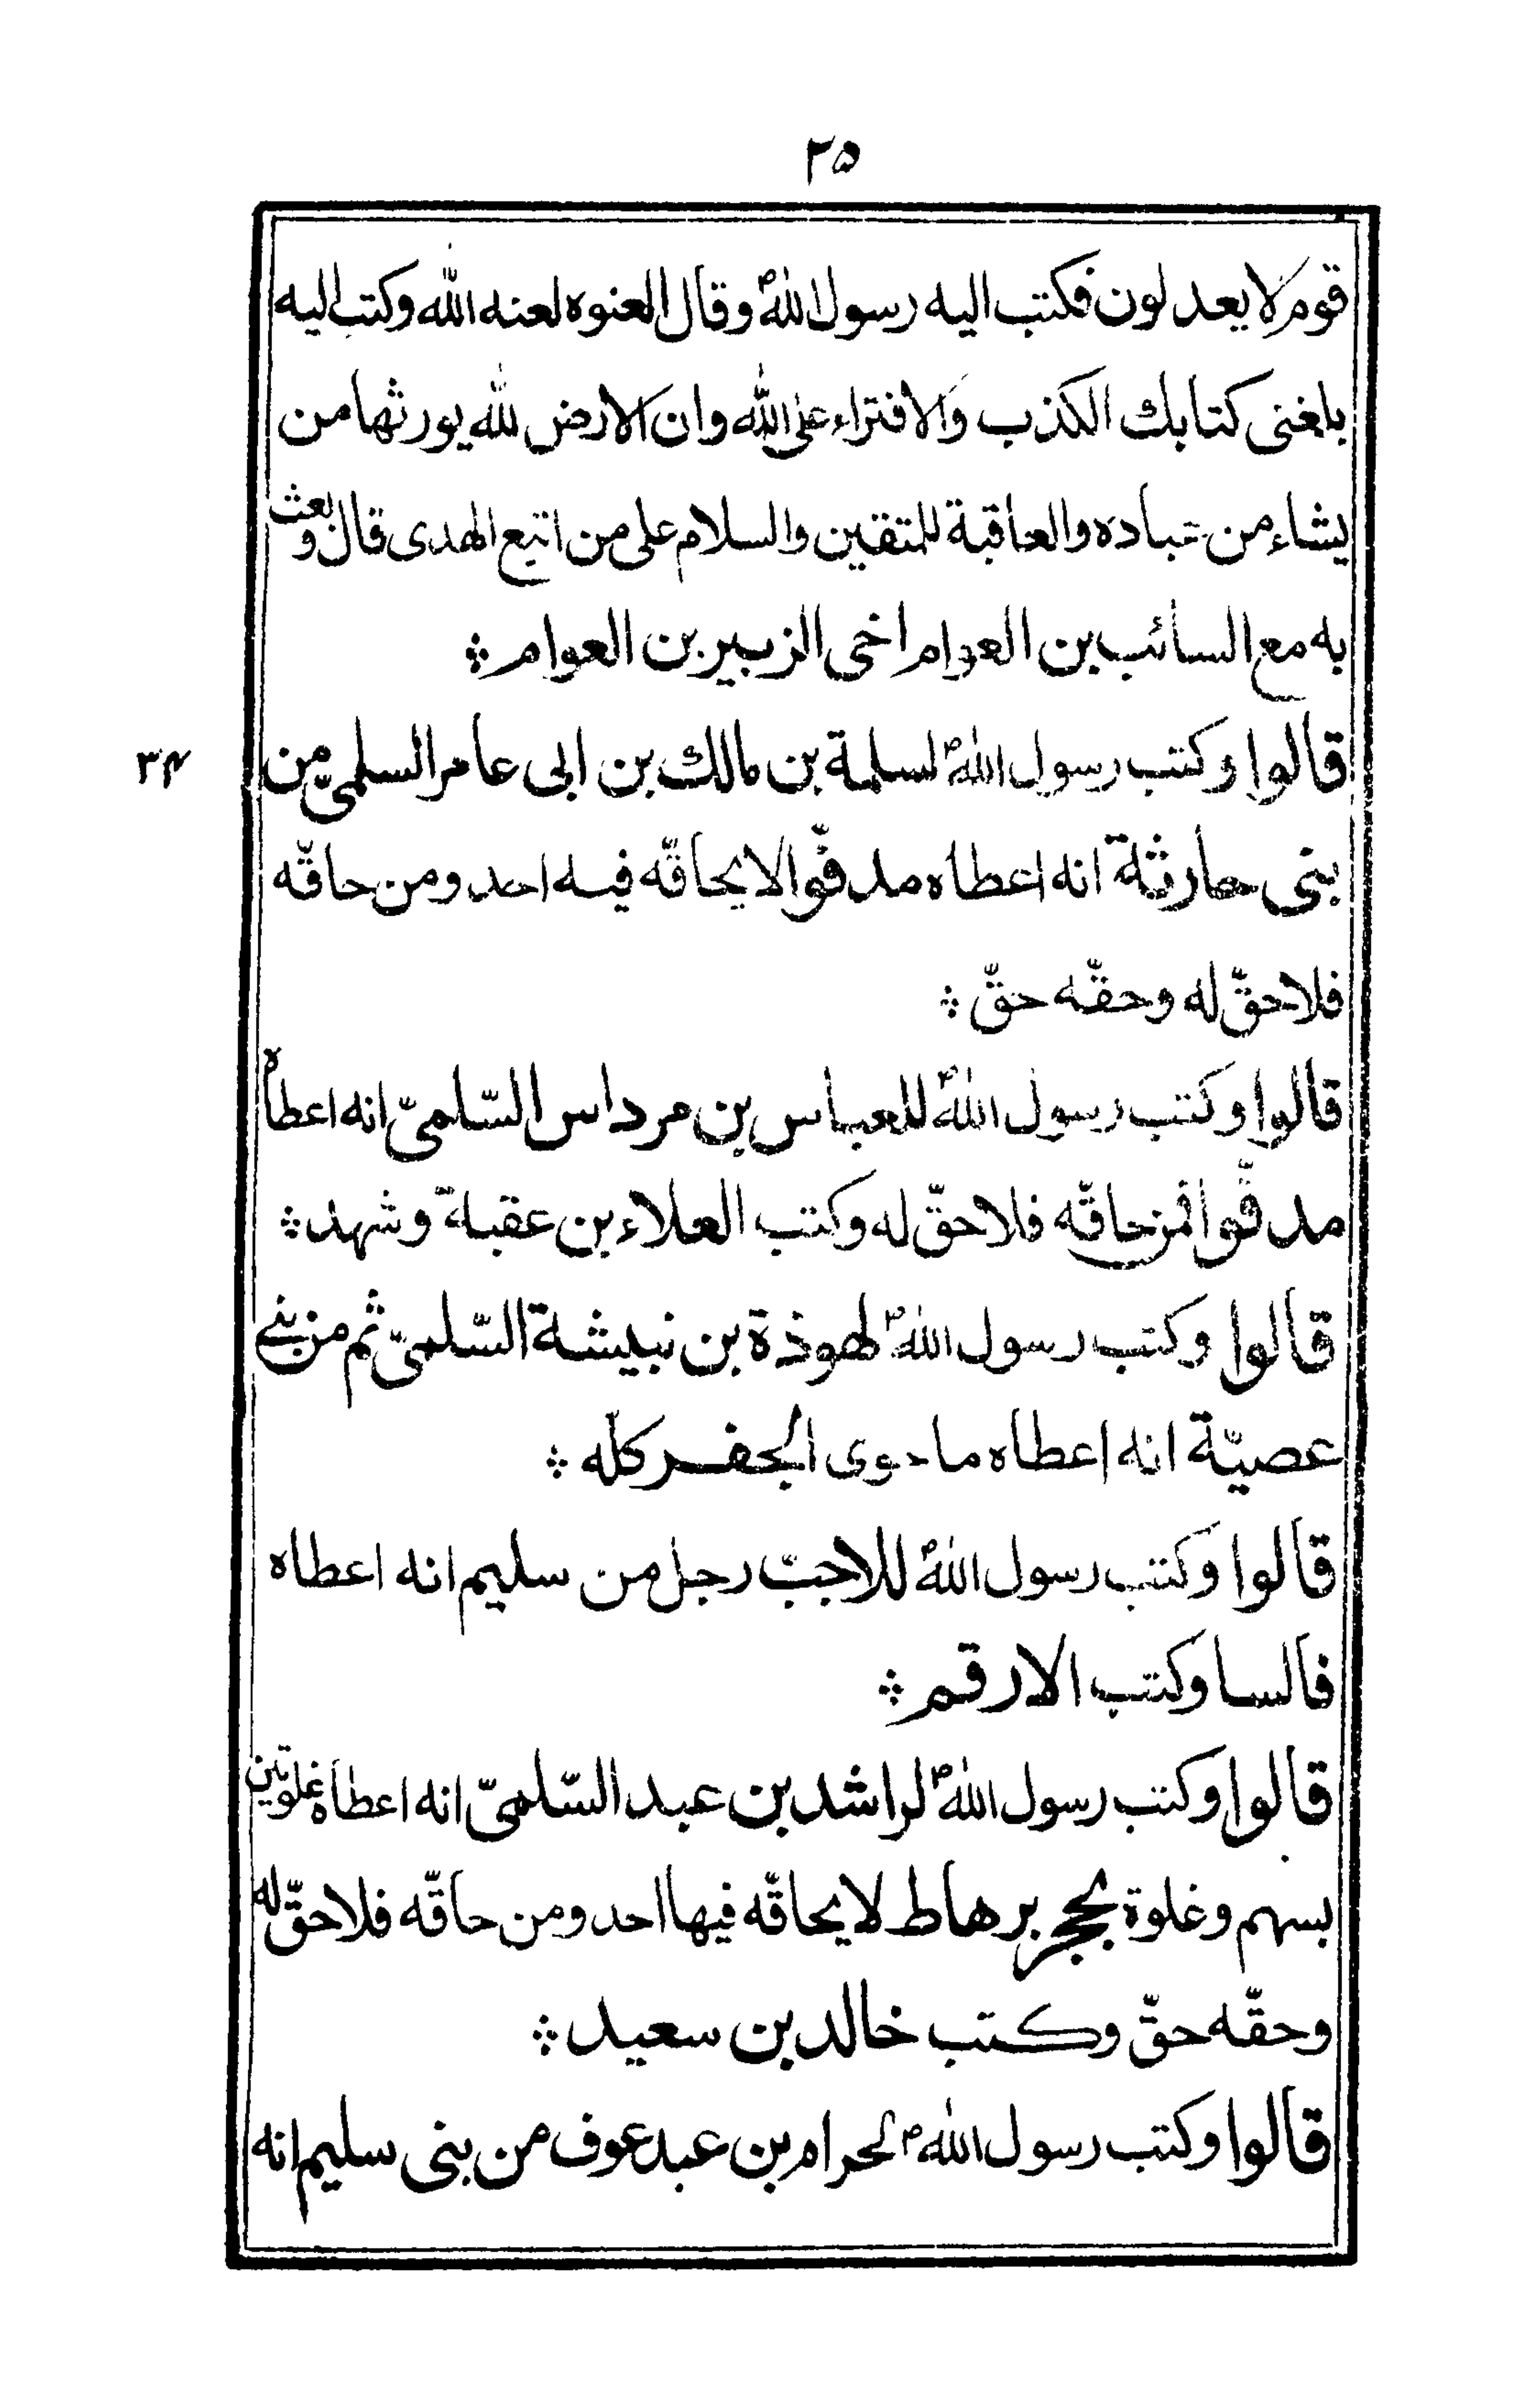 ٢۵
قوم لا يعدلون فكتب اليه رسول اللهؐ وقال العنوه لعنه الله وكتب اليه
بلغنى كتابك الكذب والافتراء على الله وان الارض لله يورثها من
يشاء من عباده والعاقبة للمتقين والسلام على من اتبع الهدى قال وبعث
به مع السائب بن العوام اخى الزبير بن العوام ؞
قالوا وكتب رسول اللهؐ لسلمة بن مالك بن ابى عامر السلمى من
٣۴
بنى حارثة انه اعطاه مدفّوا لا يحاقّه فيه احد ومن حاقّه
فلا حقّ له وحقّه حقّ ؞
قالوا وكتب رسول اللهؐ للعباس بن مرداس السّلمىّ انه اعطاه
مدفّوا فمن حاقّه فلا حقّ له وكتب العلاء بن عقبة وشهد ؞
قالوا وكتب رسول اللهؐ لهوذة بن نبيشة السّلمىّ ثم من بنى
عصيّة انه اعطاه ما حوى الجفر كلّه ؞
قالوا وكتب رسول اللهؐ للاجبّ رجل من سليم انه اعطاه
فالسا وكتب الارقم ؞
قالوا وكتب رسول اللهؐ لراشد بن عبد السّلمىّ انه اعطاه غلوتين
بسهم وغلوة بحجر برهاط لا يحاقّه فيها احد ومن حاقّه فلا حقّ له
وحقّه حقّ وكتب خالد بن سعيد ؞
قالوا وكتب رسول اللهؐ لحرام بن عبد عوف من بنى سليم انه